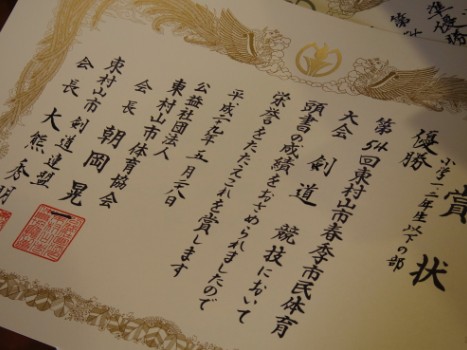 賞状
小学一、二年生以下の部
優勝
第54回東村山市春季市民体育
大会 剣道 競技において
頭書の成績をおさめられましたので
栄誉をたたえこれを賞します
平成二九年 五月二八日
公益社団法人
東村山市体育協会
会長 朝岡 晃
東村山市剣道連盟
会長 大熊
準優勝
第54